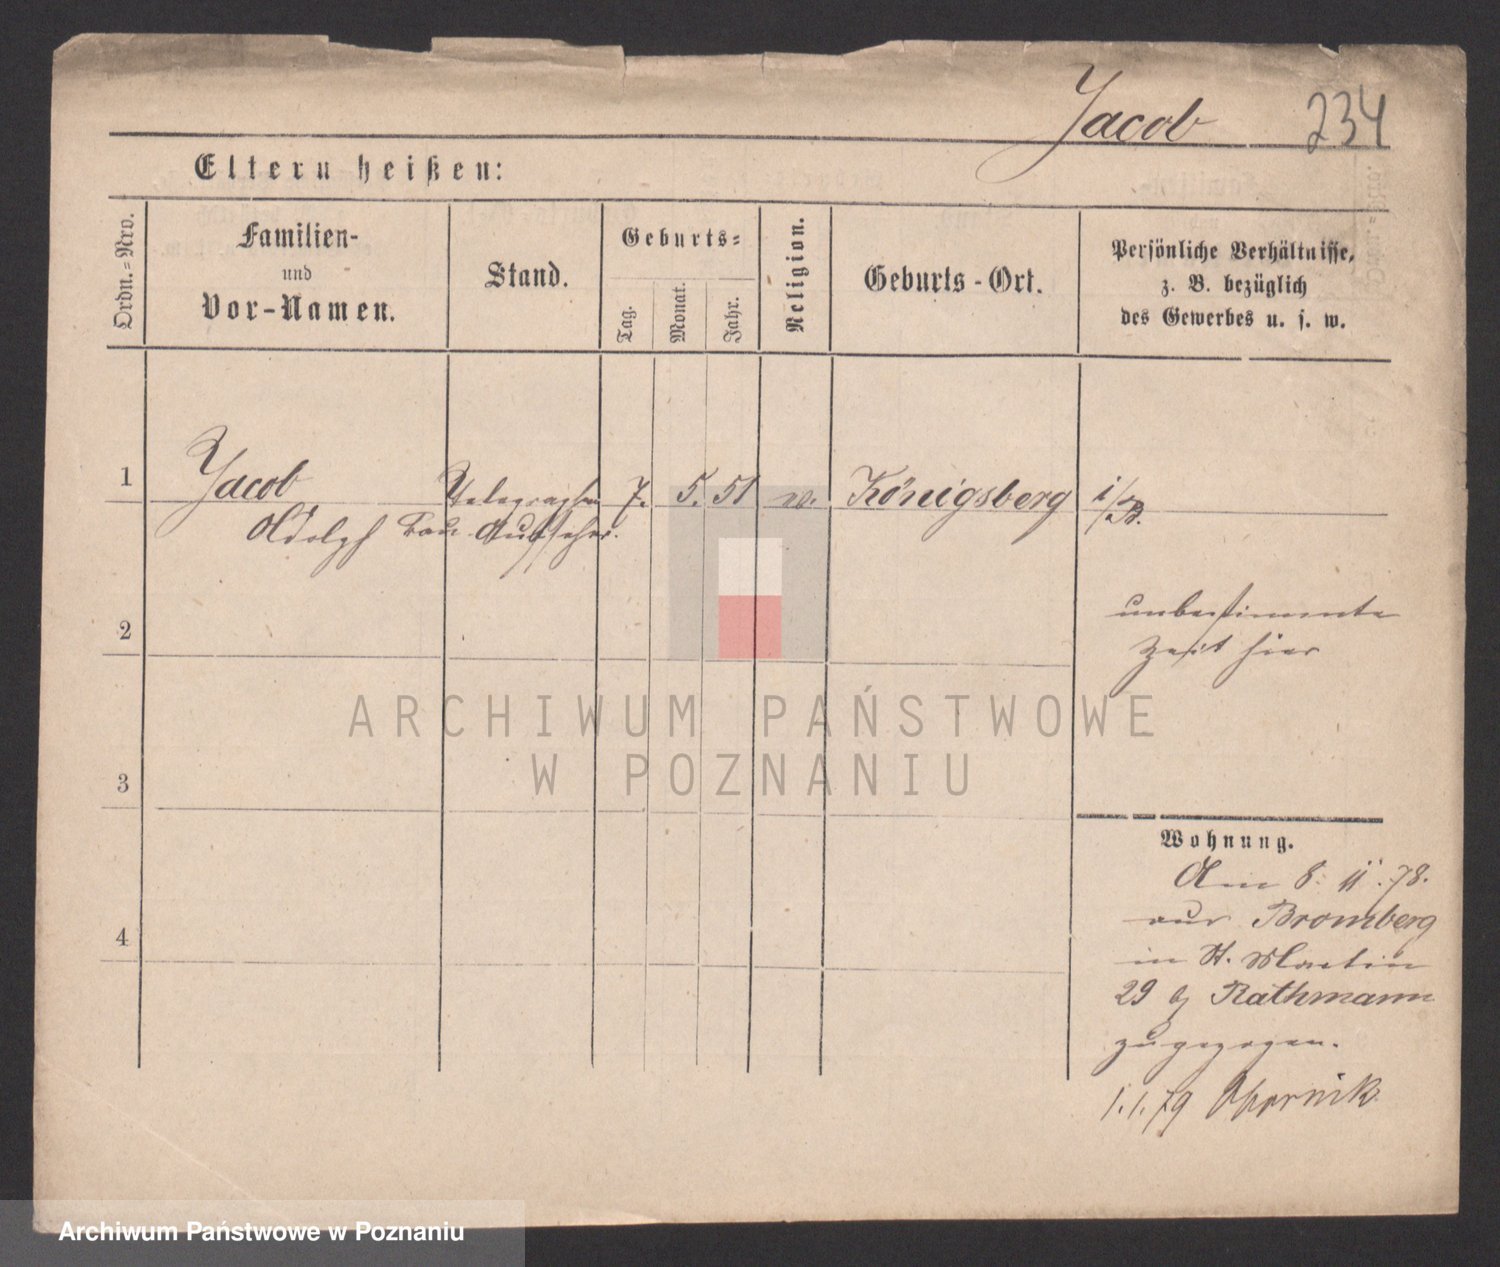 Jacob 234
Eltern heißen:
Ordn.=Nro.
Familien-
und
Vor-Namen.
Stand.
Geburts=
Tag.
Monat.
Jahr.
Religion.
Geburts-Ort.
Persönliche Verhältnisse,
z. B. bezüglich
des Gewerbes u. s. w.
1 Jacob Telegraphen 7. 5. 51 Königsberg i/
Adolph Bau Aufseher.
unbestimmte
Zeit hier
2
3
4
Wohnung.
Am 8. 11. 78.
aus Bromberg
in St. Martin
29 b/ Rathmann
zugezogen.
1.1.79 Obornik
ARCHIWUM PAŃSTWOWE
W POZNANIU
Archiwum Państwowe w Poznaniu